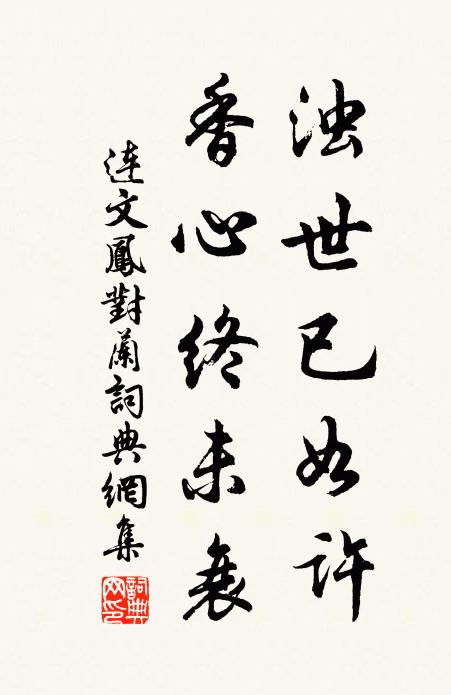 浊世已如许
香心终未衰
連文鳳對蘭詞典網集
詞典網印